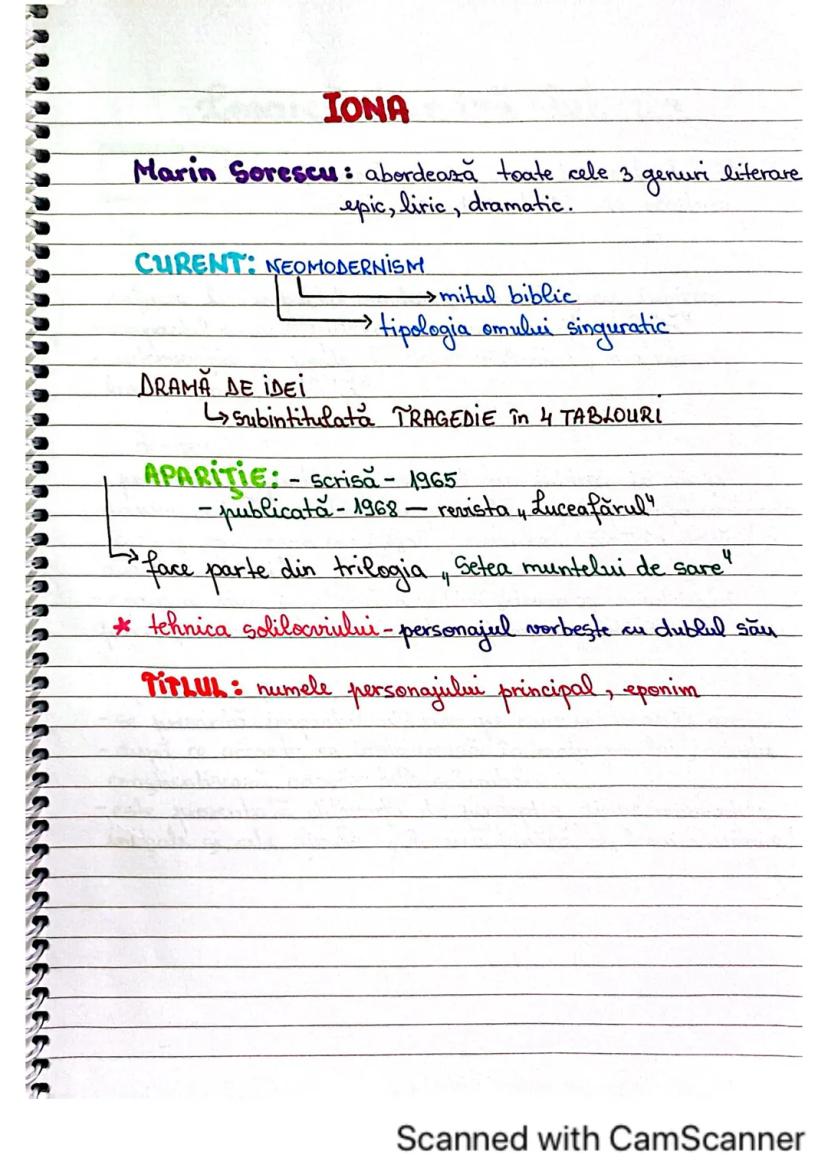 IONA
Marin Sorescu: abordează toate cele 3 genuri literare
epic, liric, dramatic.
CURENT: NEOMODERNISM
→ mitul biblic
→ tipologia omului singuratic
DRAMĂ DE IDEI
↳ subintitulată TRAGEDIE în 4 TABLOURI
APARIȚIE: - scrisă - 1965
- publicată - 1968 — revista „Luceafărul"
→ face parte din trilogia „Setea muntelui de sare"
* tehnica solilocviului - personajul vorbește cu dublul său
TITLUL: numele personajului principal, eponim
Scanned with CamScanner